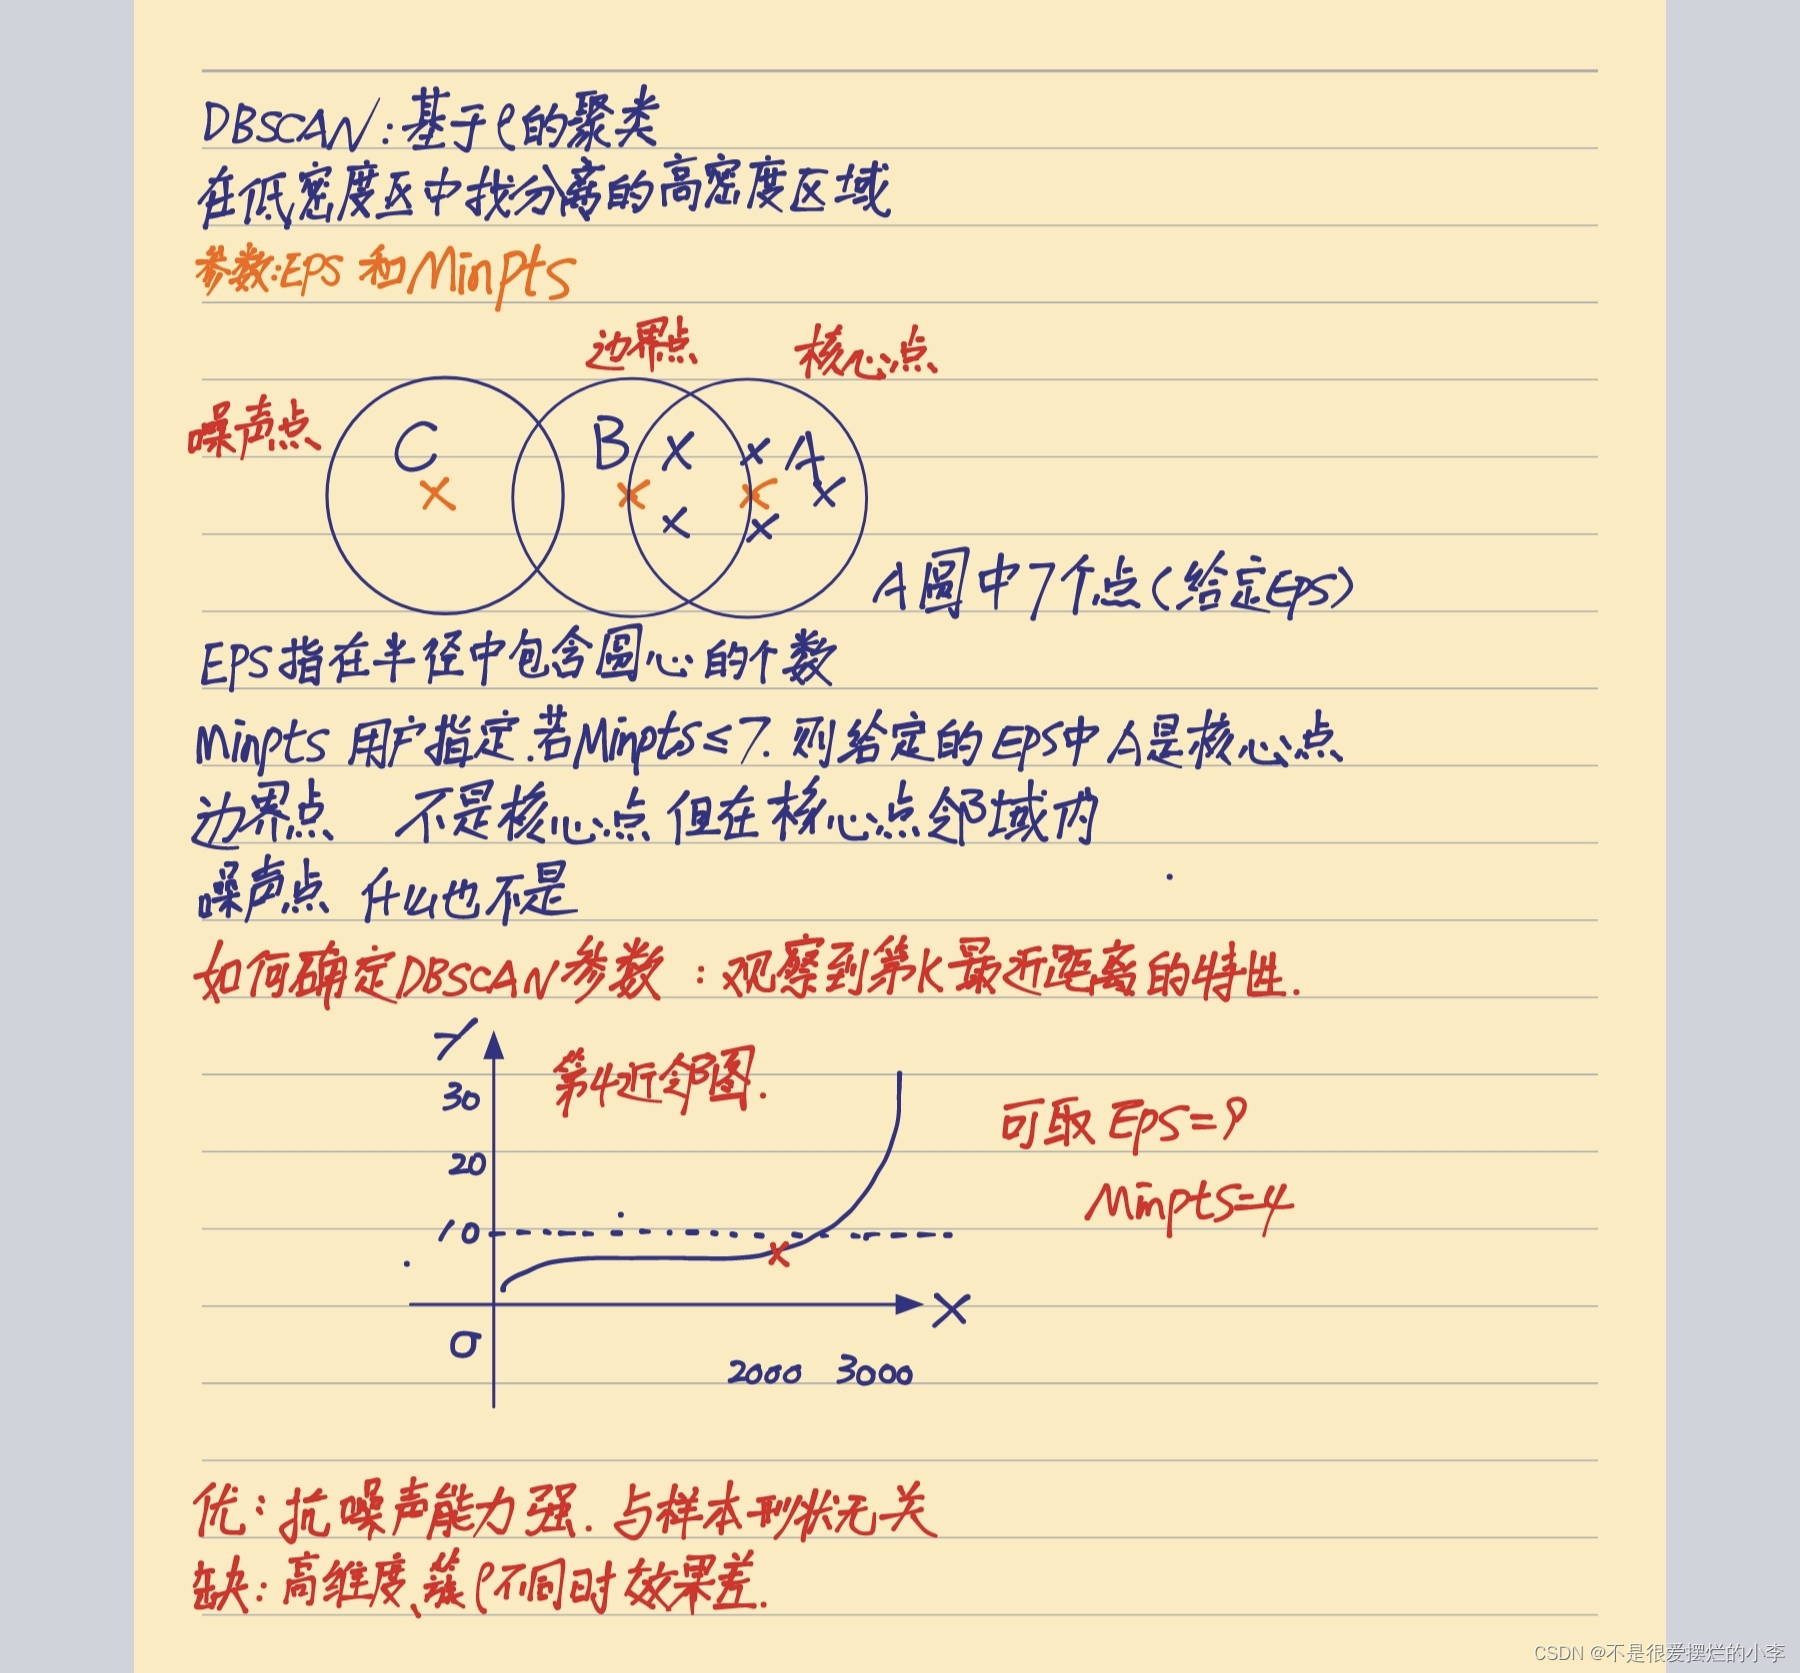 DBSCAN:基于ρ的聚类
在低密度区中找分离的高密度区域
参数:EPS 和Minpts
边界点 核心点
噪声点
C B A
A圆中7个点(给定Eps)
EPS指在半径中包含圆心的个数
Minpts 用户指定.若Minpts≤7.则给定的Eps中A是核心点
边界点 不是核心点但在核心点邻域内
噪声点 什么也不是
如何确定DBSCAN参数:观察到第K最近距离的特性.
Y
第4近邻图.
30
可取 Eps=9
20
Minpts=4
10
X
0
2000 3000
优:抗噪声能力强.与样本形状无关
缺:高维度、簇ρ不同时效果差.
CSDN @不是很爱摆烂的小李